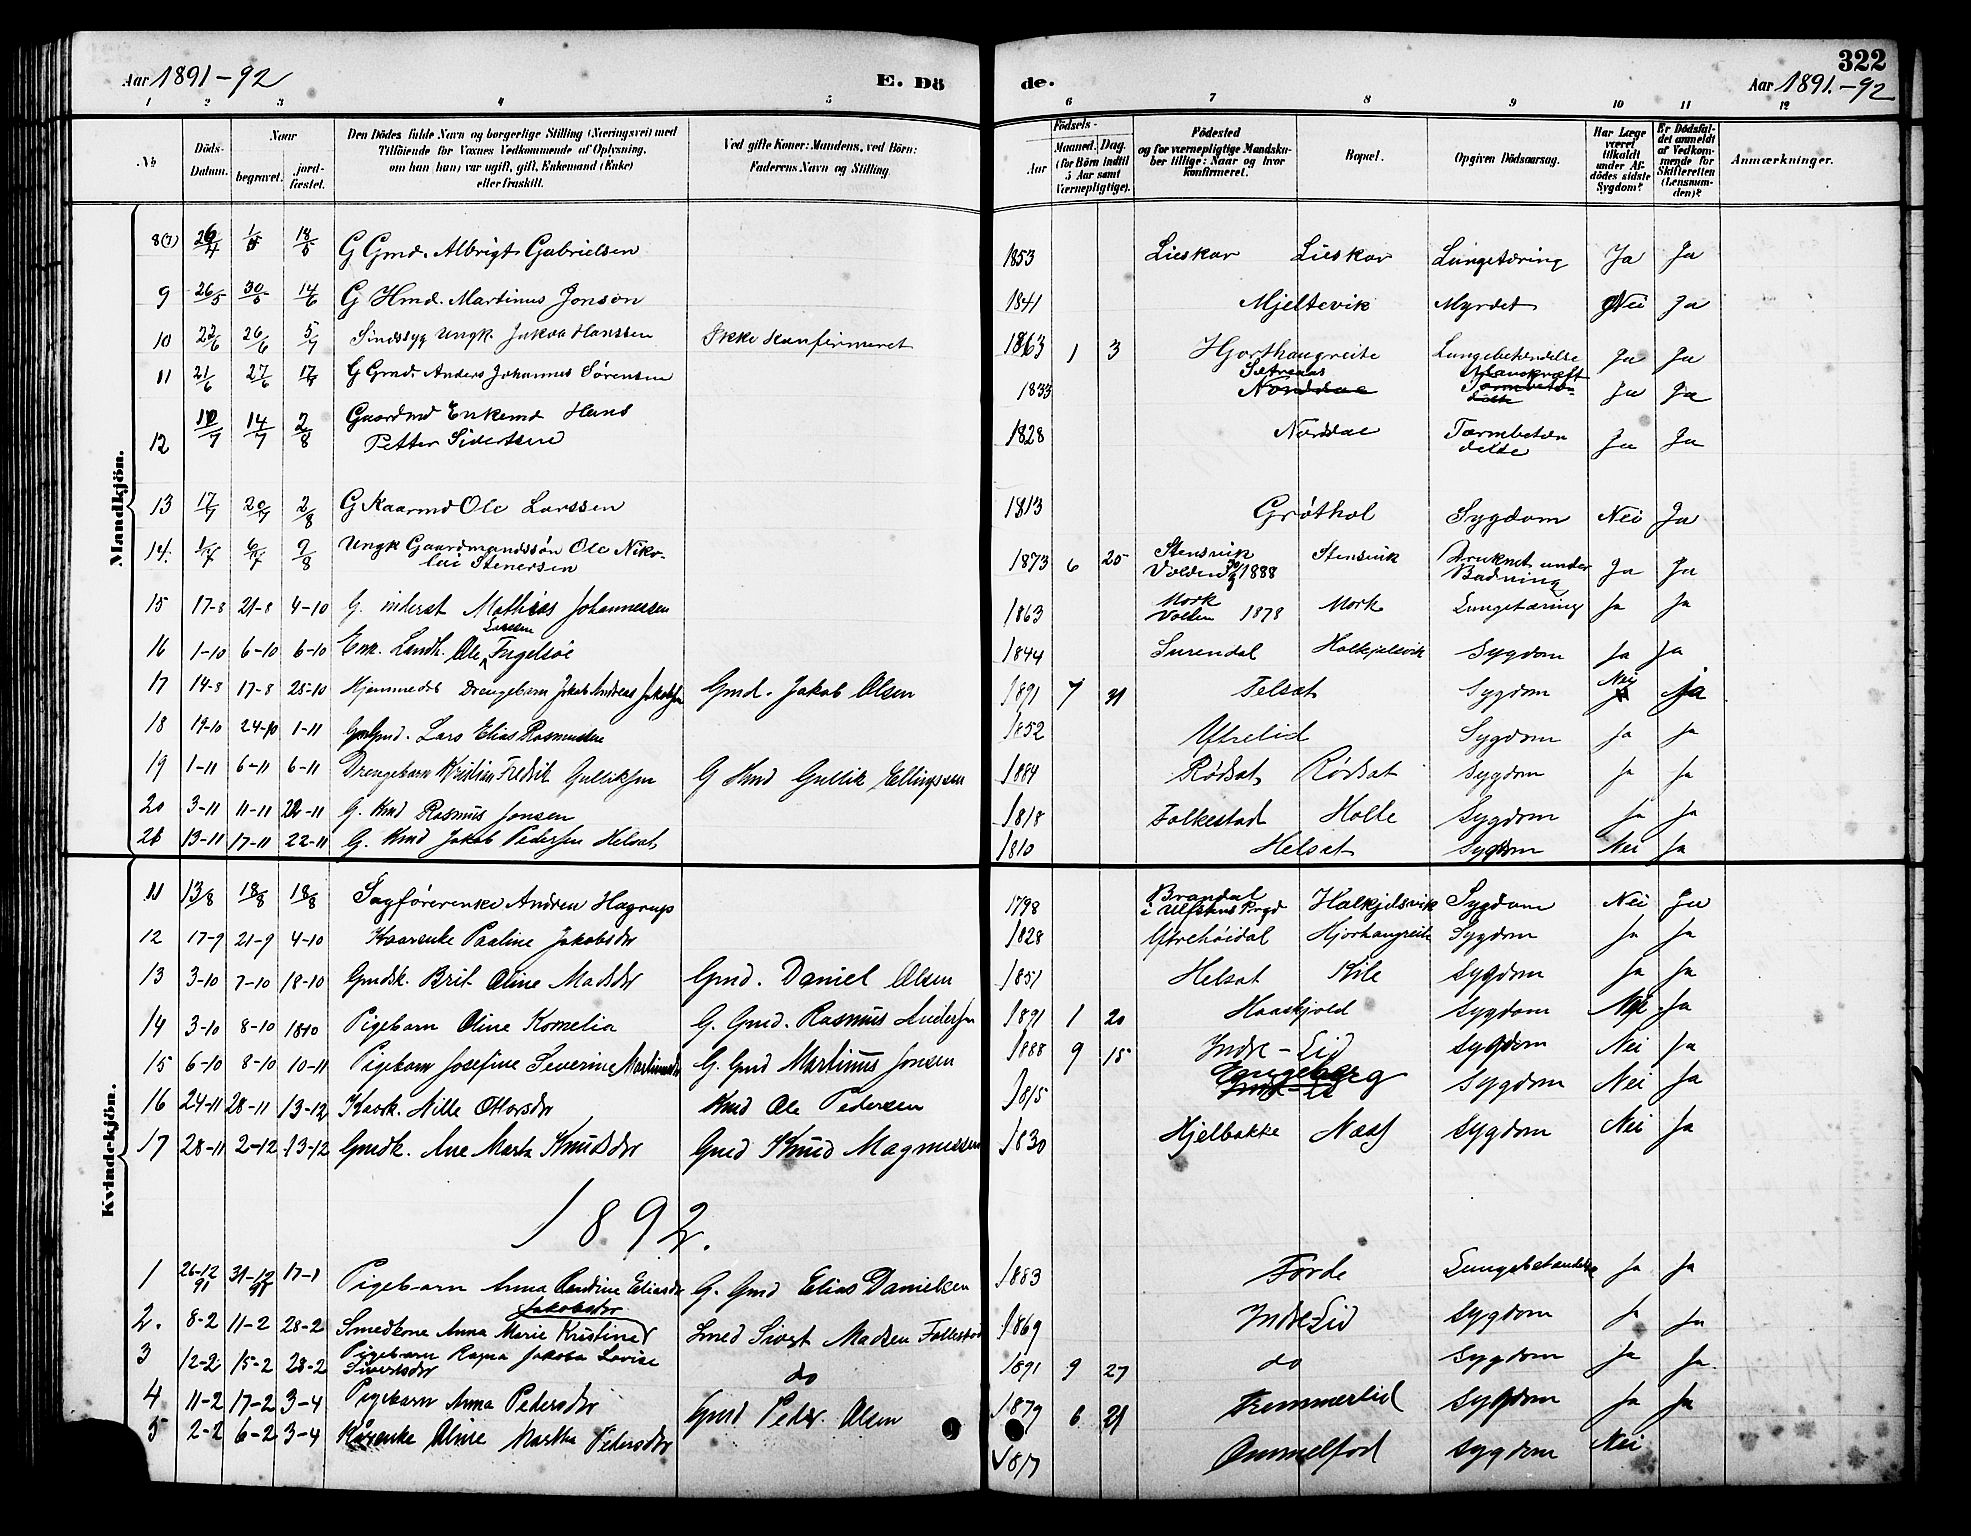 322
Aar 1891-92
E. Dö
de.
Aar 1891.-92
1 2 3 4 5 6 7 8 9 10 11 12
No
Döds-Datum.
Naar
begravet.
jord-fæstet.
Den Dödes fulde Navn og borgerlige Stilling (Næringsvei) med
Tilföiende for Voxnes Vedkommende af Oplysning,
om han (hun) var ugift, gift, Enkemand (Enke)
eller fraskilt.
Ved gifte Koner: Mandens, ved Börn:
Faderens Navn og Stilling.
Födsels-
Aar
Maaned. Dag.
(for Börn indtil
5 Aar samt
Værnepligtige).
Födested
og for værnepligtige Mandska-
ber tillige: Naar og hvor
konfirmeret.
Bopæl.
Opgiven Dödsaarsag.
Har Læge
været
tilkaldt
under Af-
dödes sidste
Sygdom?
Er Dödsfal-
det anmeldt
af Vedkom-
mende for
Skifteretten
(Lensman-
den)?
Anmærkninger.
Mandkjön.
8(7) 26/4 1/5 18/5 G Gmd. Albrigt Gabrielsen 1853 Lieskar Lieskar Lungetæring Ja Ja
9 26/5 30/5 14/6 G Hmd. Martinus Jonson 1841 Mjeltevik Myrdet Nei Ja
10 22/6 26/6 5/7 Sindssyg Ungk. Jakob Hanssen Ikke konfirmeret 1863 1 3 Hjorthaugreite Lungebetændelse Ja Ja
11 21/6 27/6 G Gmd. Anders Johannes Sørensen 1833 Norddal Ja Ja
12 14/7 2/8 Gaardmd Enkemd Hans
Petter Sivertsen 1828 Norddal Tarmbetæn
delse Ja Ja
13 17/7 20/7 2/8 G Kaarmd Ole Larssen 1813 Grøthol Sygdom Nei Ja
14. 6/7 2/8 Ungk Gaardmandssön Ole Niko-
lai Stenersen 1873 6 25 Stensvik
Volden 1888 Stensvik Druknet under
Badning Ja Ja
15 17-8 21-8 4-10 G. inderst Mathias Johannessen 1863 Mork
Volden 1878 Mork Lungetæring Ja Ja
16 1-10 6-10 6-10 Enk. Landh. Ole Larsen Fugelsøe 1844 Surendal Halkjelsvik Sygdom Ja Ja
17 14-8 17-8 25-10 Hjemmedøbt Drengebarn Jakob Andreas Jakobsen Gmd. Jakob Olsen 1891 7 31 Felsat Sygdom Nei Ja
18 19-10 24-10 1-11 Gmd. Lars Elias Rasmussen 1852 Ytrelid Sygdom Ja Ja
19 1-11 6-11 6-11 Drengebarn Kristian Fredrik Gulliksen G Hmd Gullik Ellingssen 1884 Rødsat Rødsat Sygdom Ja Ja
20 3-11 11-11 22-11 G. Kmd Rasmus Jonsen 1818 Folkestad Holte Sygdom Ja Ja
21 13-11 17-11 22-11 G. Kmd Jakob Pedersen Helsat 1810 Helsat Sygdom Nei Ja
Kvindekjön.
11 13/8 18/8 18/8 Sagförerenke Andrea Hagrup 1798 Brandal
i Ulfstens Prgd Halkjelsvik Sygdom Nei Ja
12 17-9 21-9 4-10 Kaarenke Pauline Jakobsdr 1828 Ytrehöidal Hjorthaugreite Sygdom Ja Ja
13 3-10 7-10 18-10 Gmdsk. Brit Oline Madsdr Gmd. Daniel Olsen 1851 Helsat Kile Sygdom Ja Ja
14 3-10 8-10 18-10 Pigebarn Oline Kornelia G. Gmd. Rasmus Andersen 1891 1 20 Haaskjold Sygdom Nei Ja
15 6-10 8-10 10-11 Pigebarn Josefine Severine Martinusdr G. Gmd Martinus Jonsen 1888 9 15 Indre-Eid Sygdom Nei Ja
16 24-11 28-11 13-12 Kaark. Nille Ottarsdr Kmd Ole Pedersen 1815 Engeberg Sygdom Nei Ja
17 28-11 2-12 13-12 Gmdk. Ane Marta Knudsdr Gmd Knud Magnussen 1830 Hjelbakke Næss Sygdom Nei Ja
1892.
1 26-12 91 31-12 91 17-1 Pigebarn Anna Randine Eliasdr G. Gmd Elias Danielsen 1883 Förde Lungebetændelse Ja Ja
2. 8-2 11-2 28-2 Smedkone Anna Marie Kristine Jakobsdr Smed Sivert Madsen Folkestad 1869 Indre Eid Sygdom Ja Ja
3 12-2 15-2 28-2 Pigebarn Ragna Jakoba Lovise
Sivertsdr do 1891 9 27 do Sygdom Ja Ja.
4 11-2 17-2 3-4 Pigebarn Anna Pedersdr Gmd Peder Olsen 1879 6 21 Sygdom Ja Ja
5 2-2 6-2 3-4 Kårenke Oline Martha Pedersdr 1817 Ommelfod Sygdom Nei